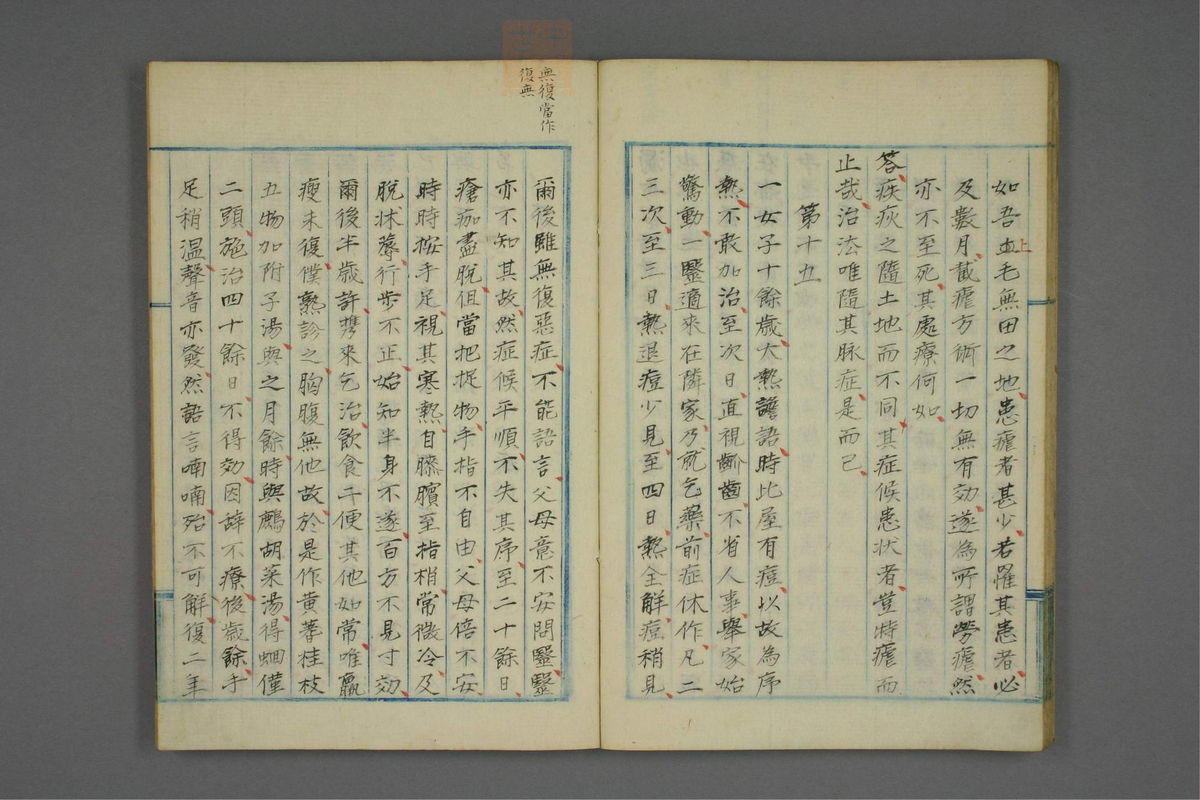 如吾上毛無田之地患瘧者甚少若罹其患者必
及數月截瘧方術一切無有効遂為所謂勞瘧然
亦不至死其處療何如
答疾疢之隨土地而不同其症候患状者豈特瘧而
止哉治法唯隨其脉症是而已
第十五
一女子十餘歳大熱譫語時比屋有痘以故為序
熱不敢加治至次日直視齘齒不省人事舉家始
驚動一毉適來在隣家乃就乞藥前症休作凡二
三次至三日熱退痘少見至四日熱全解痘稍見
無復當作
復無
爾後雖無復惡症不能語言父母意不安問毉毉
亦不知其故然症候平順不失其序至二十餘日
瘡痂盡脫但當把捉物手指不自由父母倍不安
時時按手足視其寒熱自膝臏至指梢常微冷及
脫牀蓐行步不正始知半身不遂百方不見寸効
爾後半歳許携來乞治飲食二便其他如常唯羸
瘦未復僕熟診之胸腹無他故於是作黄蓍桂枝
五物加附子湯與之月餘時與鷓胡菜湯得蛔僅
二頭施治四十餘日不得効因辞不療後歳餘手
足稍溫聲音亦發然語言喃喃殆不可解復二年